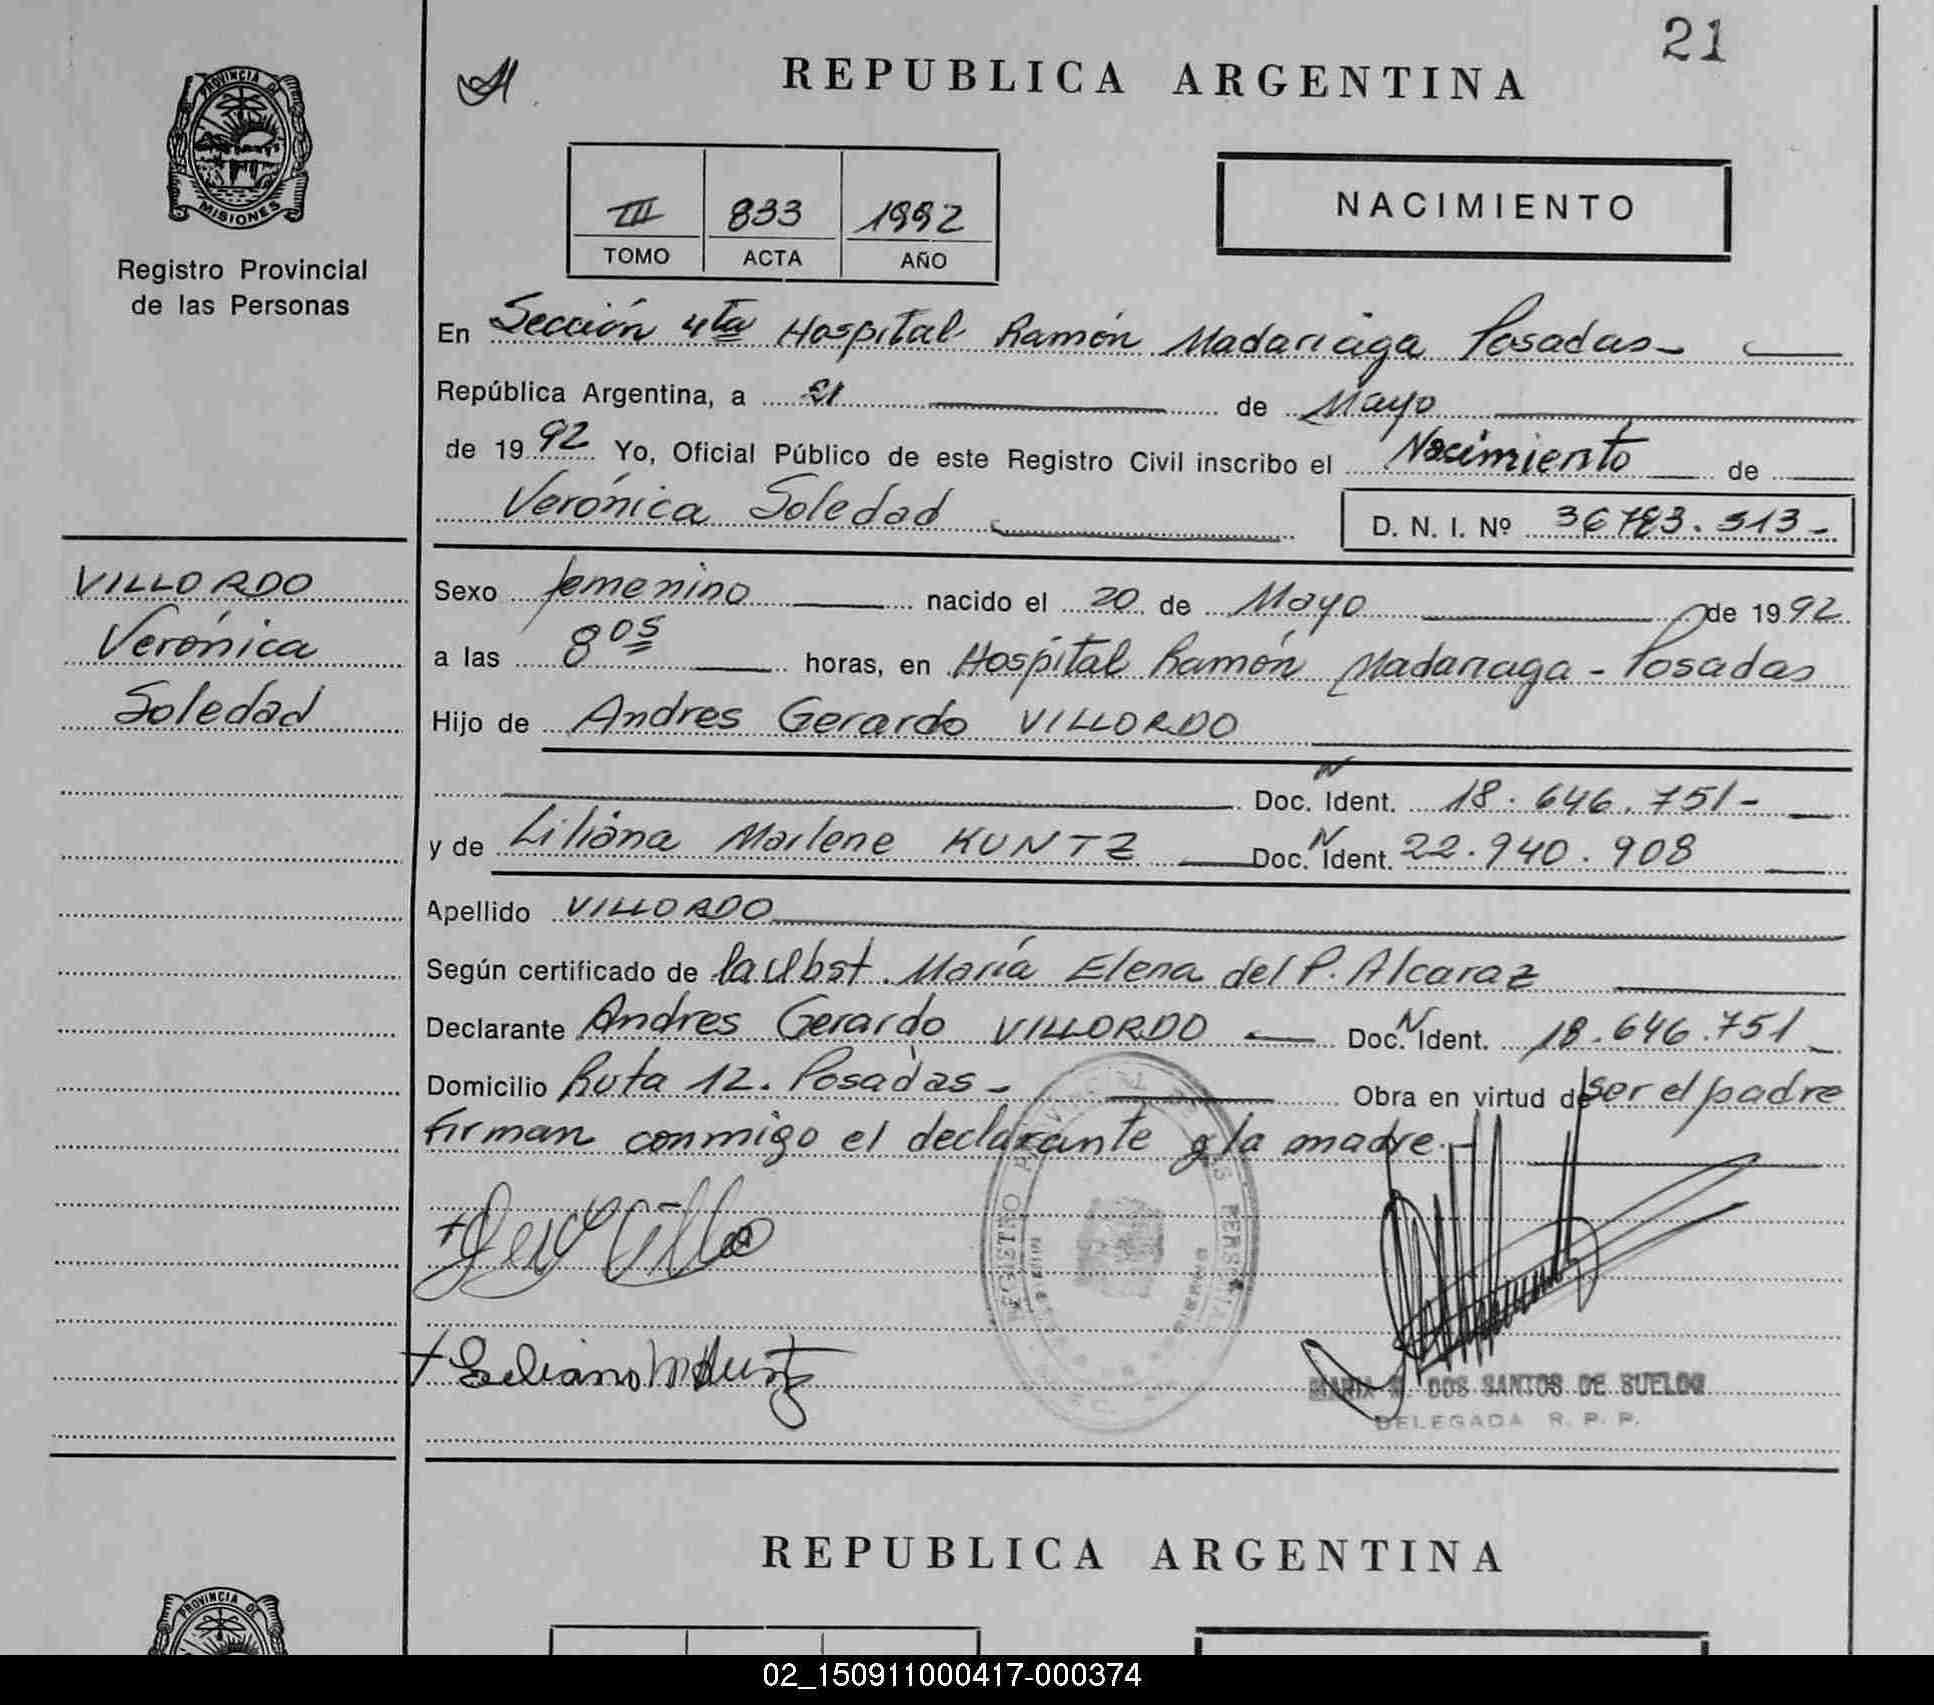 21
REPUBLICA ARGENTINA
PROVINCIA DE
MISIONES
Registro Provincial
de las Personas
III 833 1992
TOMO ACTA AÑO
NACIMIENTO
En Sección 4ta Hospital Ramón Madariaga Posadas-
República Argentina, a 21 de Mayo
de 1992 Yo, Oficial Público de este Registro Civil inscribo el Nacimiento de
Verónica Soledad D. N. I. Nº 36783.513-
VILLORDO
Verónica
Soledad
Sexo femenino nacido el 20 de Mayo de 1992
a las 8 05 horas, en Hospital Ramón Madariaga - Posadas
Hijo de Andres Gerardo VILLORDO
Doc. N Ident. 18.646.751-
y de Liliana Marlene KUNTZ Doc. N Ident. 22.940.908
Apellido VILLORDO
Según certificado de la Obst. María Elena del P. Alcaraz
Declarante Andres Gerardo VILLORDO Doc. N Ident. 18.646.751
Domicilio Ruta 12. Posadas- Obra en virtud de ser el padre
Firman conmigo el declarante y la madre.-
REGISTRO PROVINCIAL DE LAS PERSONAS
MARIA DOS SANTOS DE SUELDO
DELEGADA R. P. P.
REPUBLICA ARGENTINA
PROVINCIA DE
02_150911000417-000374